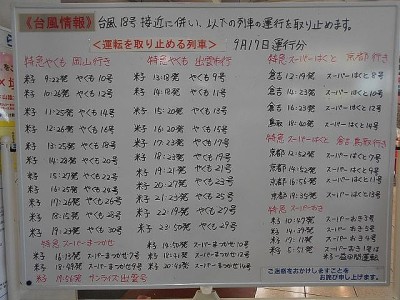 《台風情報》 台風18号 接近に伴い、以下の列車の運行を取り止めます。
<運転を取り止める列車> 9月17日運行分
特急やくも 岡山行き
米子 9:22発 やくも10号
米子 10:26発 やくも12号
米子 11:25発 やくも14号
米子 12:26発 やくも16号
米子 13:29発 やくも18号
米子 14:28発 やくも20号
米子 15:26発 やくも22号
米子 16:25発 やくも24号
米子 17:26発 やくも26号
米子 18:15発 やくも28号
米子 19:23発 やくも30号
特急やくも 出雲市行
米子 13:18発 やくも9号
米子 14:18発 やくも11号
米子 15:20発 やくも13号
米子 16:20発 やくも15号
米子 19:27発 やくも21号
米子 20:27発 やくも23号
米子 21:27発 やくも25号
米子 22:19発 やくも27号
米子 23:30発 やくも29号
特急 スーパーまつかぜ
米子 16:13発 スーパーまつかぜ7号
米子 18:48発 スーパーまつかぜ9号
米子 14:50発 スーパーまつかぜ10号
米子 18:41発 スーパーまつかぜ12号
米子 20:43発 スーパーまつかぜ14号
米子 19:56発 サンライズ出雲号
特急スーパーはくと 京都行き
倉吉 12:19発 スーパーはくと8号
倉吉 14:23発 スーパーはくと10号
倉吉 16:23発 スーパーはくと12号
鳥取 18:40発 スーパーはくと14号
特急スーパーはくと 倉吉 鳥取行き
京都 12:52発 スーパーはくと7号
京都 14:52発 スーパーはくと9号
京都 16:56発 スーパーはくと11号
京都 18:55発 スーパーはくと13号
特急スーパーおき
米子 10:47発 スーパーおき3号
米子 14:39発 スーパーおき4号
米子 17:11発 スーパーおき6号
米子 5:51発 スーパーおき1号は
米子〜益田間運転
ご迷惑をおかけしますことを
お詫び申し上げます。